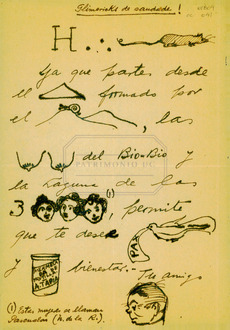 ¡Limericks de sandede!
H...
Ya que partes desde
el formado por
el , las
del Bío-Bío y
la laguna de las
3 (1), permite
que te desee PAZ
y bienestar.-
Tu amigo
(1) Estas mozas se llaman
Pascualas (N. de la R.).
PATRIMONIO UC